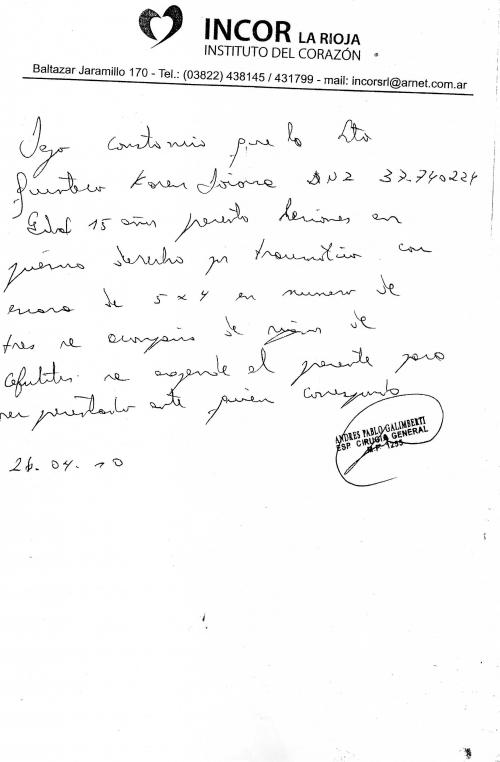 INCOR LA RIOJA
INSTITUTO DEL CORAZÓN
Baltazar Jaramillo 170 - Tel.: (03822) 438145 / 431799 - mail: incorsrl@arnet.com.ar
Dejo constancia que la Sta
Quintero Karen DNI 37.740224
Edad 15 años presenta lesiones en
derecho por traumatica con
de 5 x 4 en numero de
tres se acompaña de signos de
se extiende el presente para
ser presentado ante quien corresponda
ANDRES PABLO GALIMBERTI
ESP CIRUGIA GENERAL
M.P. 1255
26.04.10